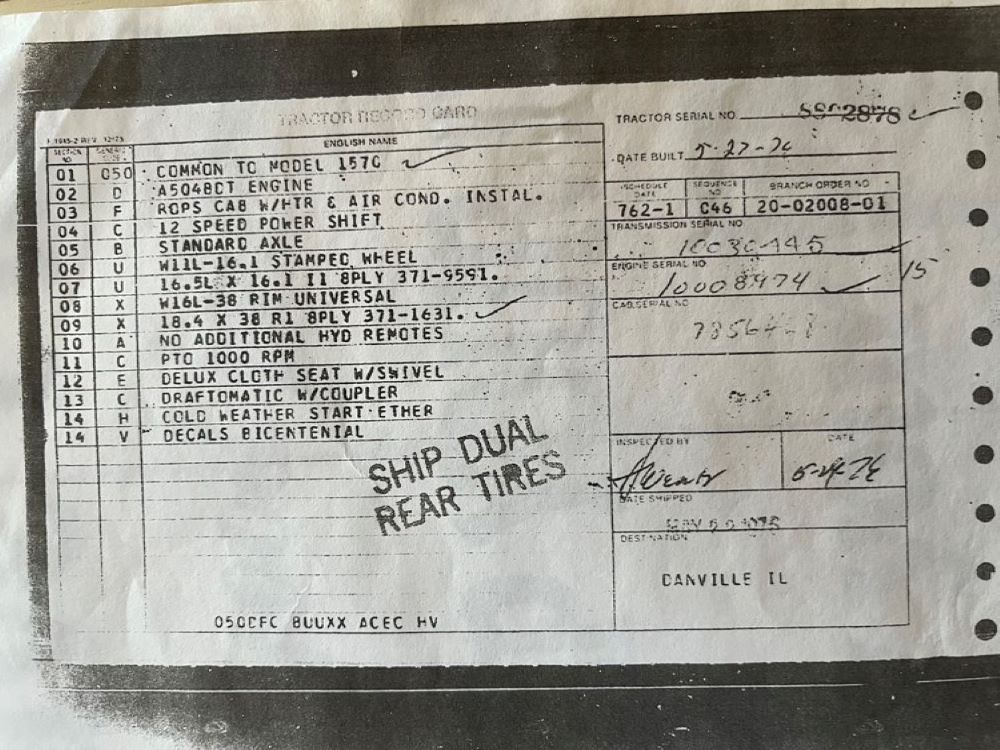 TRACTOR RECORD CARD
TRACTOR SERIAL NO. 2878
ENGLISH NAME
DATE BUILT 5-27-76
SECTION NO.
01 050 COMMON TO MODEL 1570
02 D A504BDT ENGINE
03 F ROPS CAB W/HTR & AIR COND. INSTAL.
04 C 12 SPEED POWER SHIFT
05 B STANDARD AXLE
06 U W11L-16.1 STAMPED WHEEL
07 U 16.5L X 16.1 I1 8PLY 371-9591.
08 X W16L-38 RIM UNIVERSAL
09 X 18.4 X 38 R1 8PLY 371-1631.
10 A NO ADDITIONAL HYD REMOTES
11 C PTO 1000 RPM
12 E DELUX CLOTH SEAT W/SWIVEL
13 C DRAFTOMATIC W/COUPLER
14 H COLD WEATHER START-ETHER
14 V DECALS BICENTENIAL
SHIP DUAL
REAR TIRES
050DFC BUUXX ACEC HV
SCHEDULE DATE SEQUENCE NO BRANCH ORDER NO
762-1 046 20-02008-01
TRANSMISSION SERIAL NO
ENGINE SERIAL NO
10008474
15
CAB SERIAL NO
INSPECTED BY
DATE
DATE SHIPPED
DESTINATION
DANVILLE IL